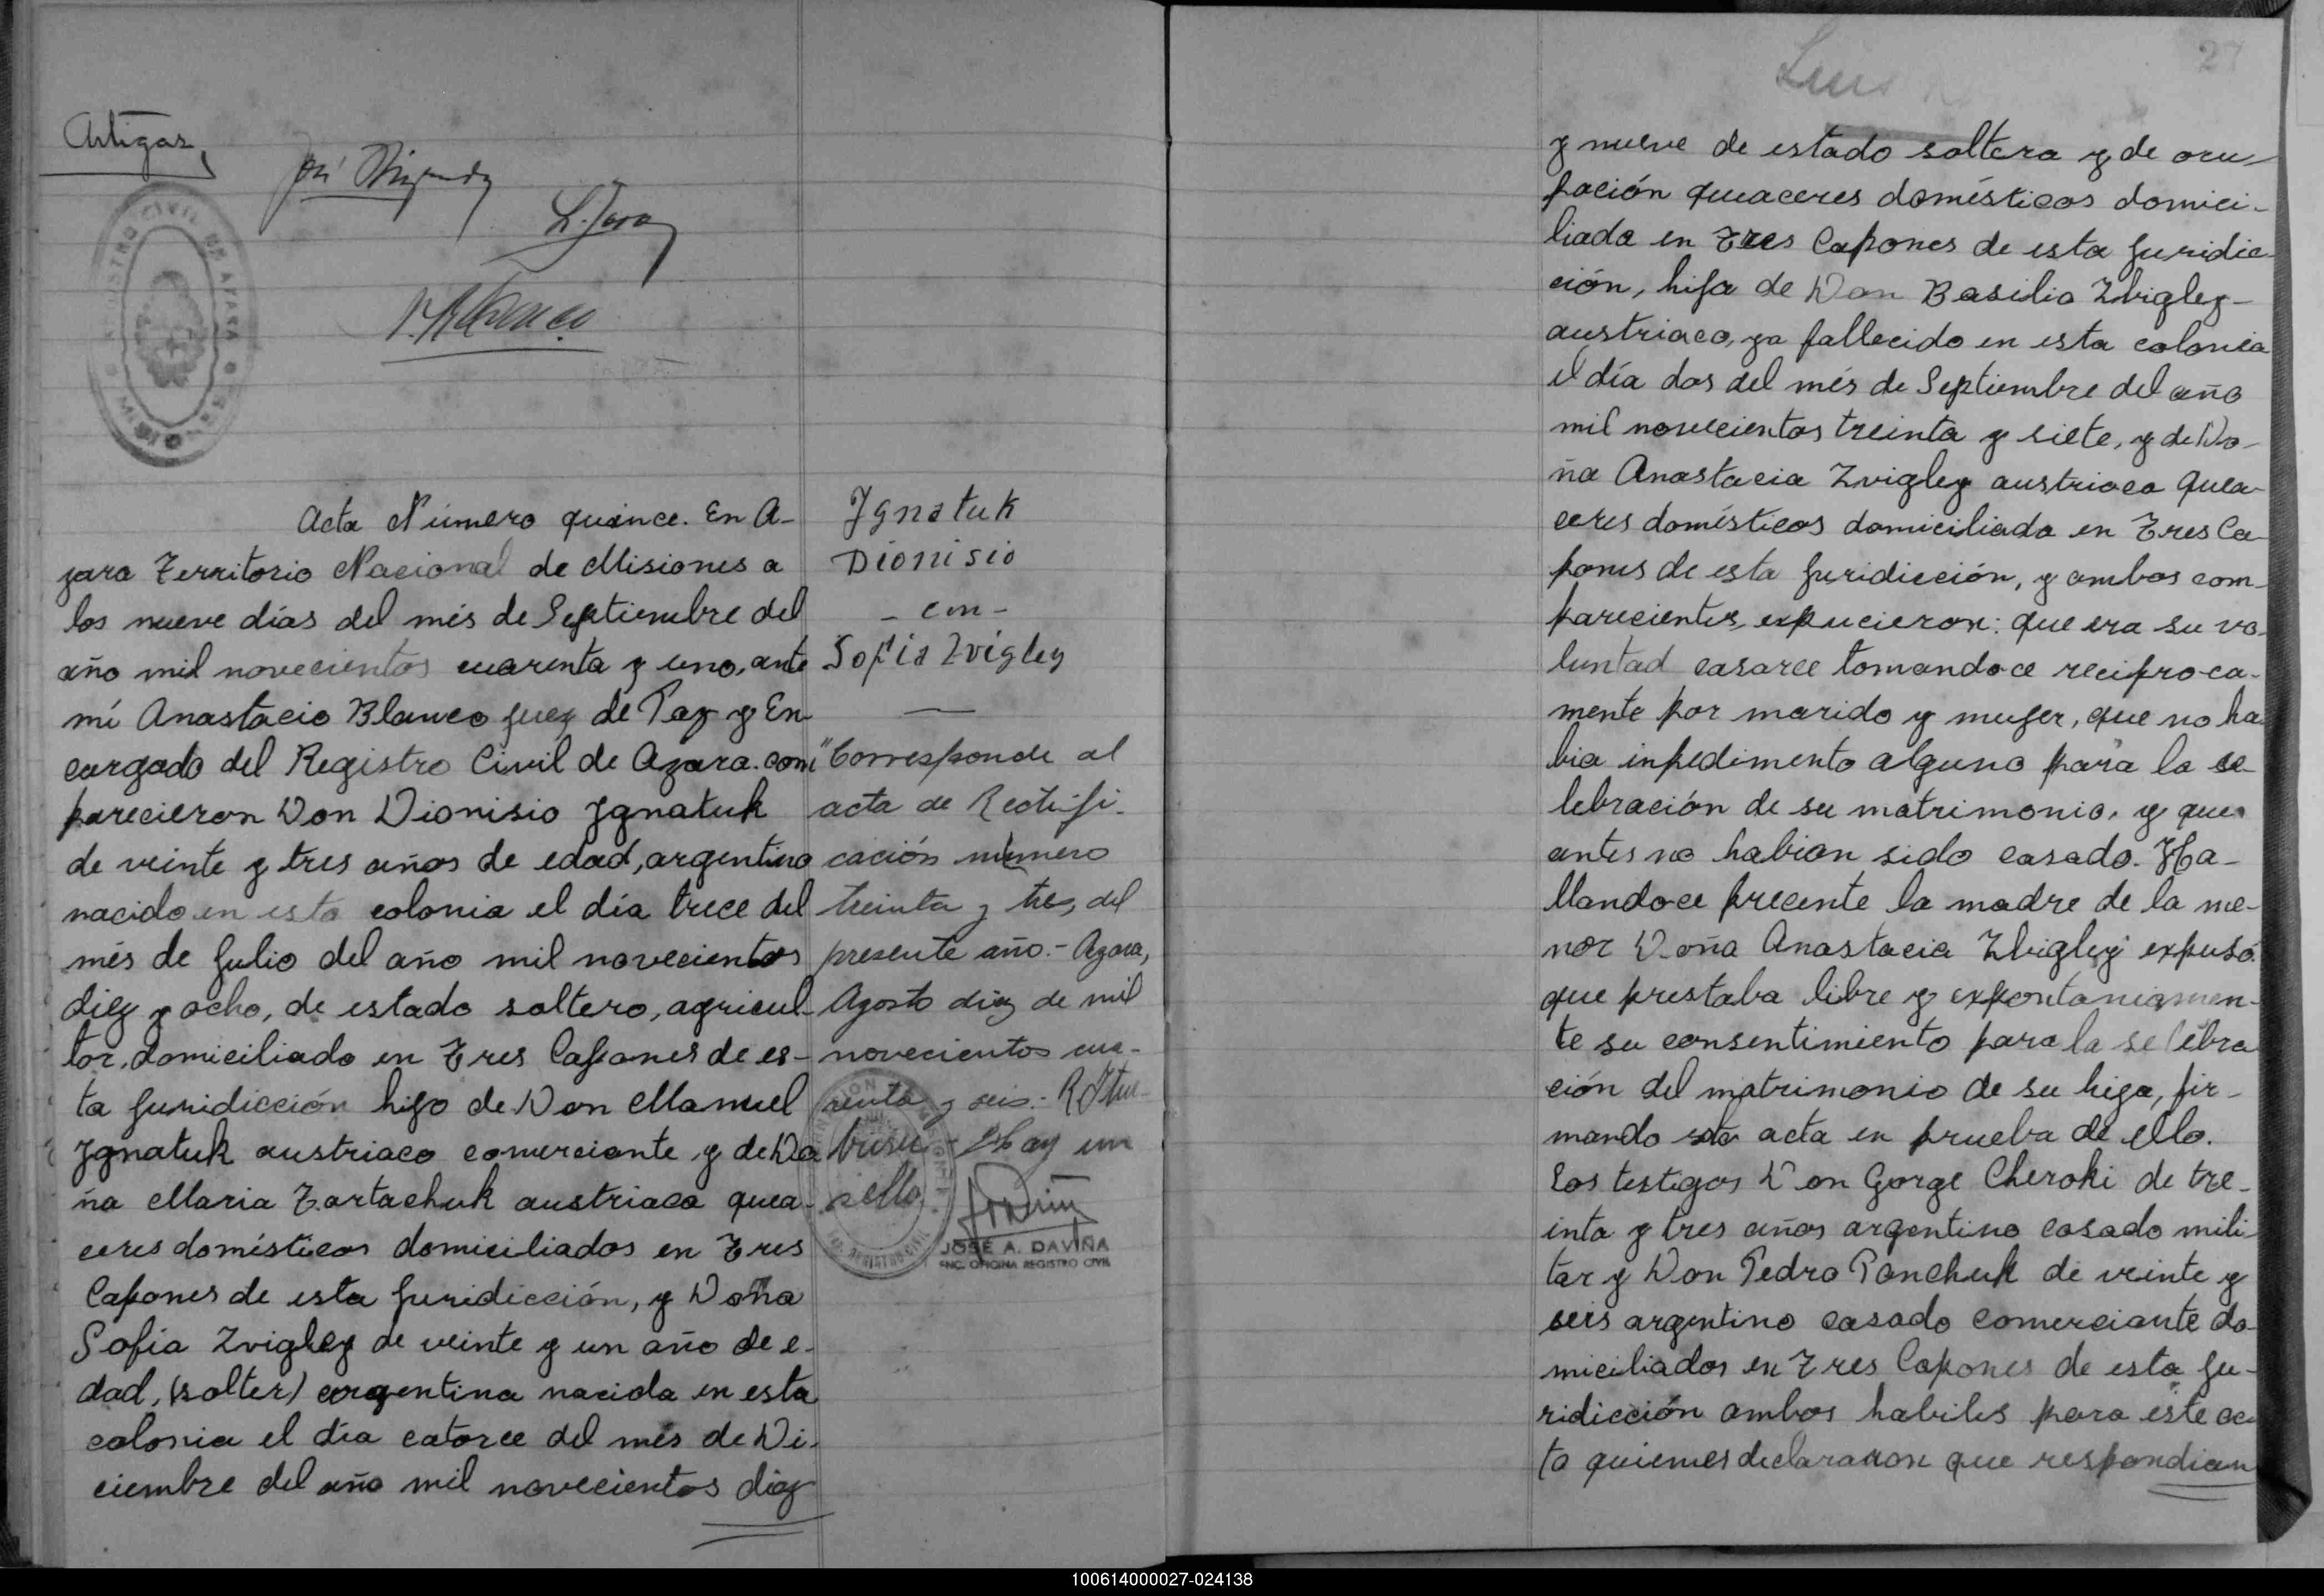 Artigas,
L. Jara
REGISTRO CIVIL DE AZARA
Acta Número quince. En A-
zara Territorio Nacional de Misiones a
los nueve días del més de Septiembre del
año mil novecientos cuarenta y uno, ante
mi Anastacio Blanco Juez de Paz y En
cargado del Registro Civil de Azara. com
parecieron Don Dionisio Ignatuk
de veinte y tres años de edad, argentino
nacido en esta colonia el día trece del
més de Julio del año mil novecientos
diez y ocho, de estado soltero, agricul-
tor, domiciliado en Tres Capones de es-
ta Juridicción hijo de Don Manuel
Ignatuk austriaco comerciante y de Do
ña Maria Tartachuk austriaca quea-
ceres domésticos domiciliados en Tres
Capones de esta Juridicción, y Doña
Sofia Zvigley de veinte y un año de e-
dad, (solter) argentina nacida en esta
colonia el día catorce del més de Di-
ciembre del año mil novecientos diez
Ignatuk
Dionisio
- con -
Sofia Zvigley
"Corresponde al
acta de Rectifi-
cación número
treinta y tres, del
presente año.- Azara,
Agosto diez de mil
novecientos cua-
renta y seis.-
Hay un
sello.
JOSE A. DAVIÑA
ENC. OFICINA REGISTRO CIVIL
Luis
27
y nueve de estado soltera y de ocu-
pación queaceres domésticos domici-
liada en Tres Capones de esta Juridic
ción, hija de Don Basilio Zbigley-
austriaco, ya fallecido en esta colonia
el día dos del més de Septiembre del año
mil novecientos treinta y siete, y de Do-
ña Anastacia Zvigley austriaca quea-
ceres domésticos domiciliada en Tres Ca-
pones de esta Juridicción, y ambos com-
parecientes, expucieron: que era su vo-
luntad casarce tomandoce reciproca-
mente por marido y mujer, que no ha-
bia inpedimento alguno para la se-
lebración de su matrimonio, y que
antes no habian sido casado. Ha-
llandoce precente la madre de la me-
nor Doña Anastacia Zbigley expusó
que prestaba libre y expontaniamen-
te su consentimiento para la selebra
ción del matrimonio de su higa, fir-
mando esta acta en prueba de ello.
Los testigos Don Gorge Cheroki de tre-
inta y tres años argentino casado mili-
tar y Don Pedro Panchuk de veinte y
seis argentino casado comerciante do-
miciliados en Tres Capones de esta Ju-
ridicción ambos habiles para este ac-
to quienes declararon que respondian
100614000027-024138